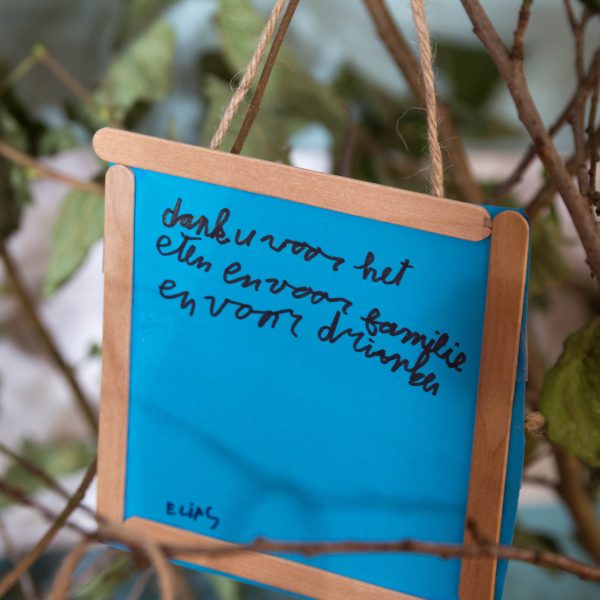 dank u voor het
eten en voor familie
en voor drinken
ELIAS